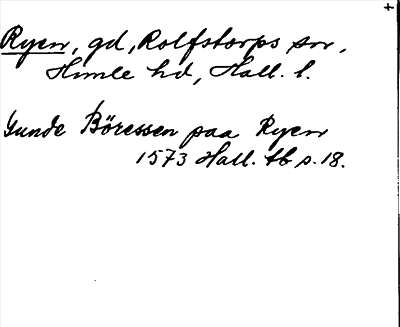 Ryen, gd, Rolfstorps sn,
Himle hd, Hall. l.
Gunde Böressen paa Ryen
1573 Hall. tb s. 18.